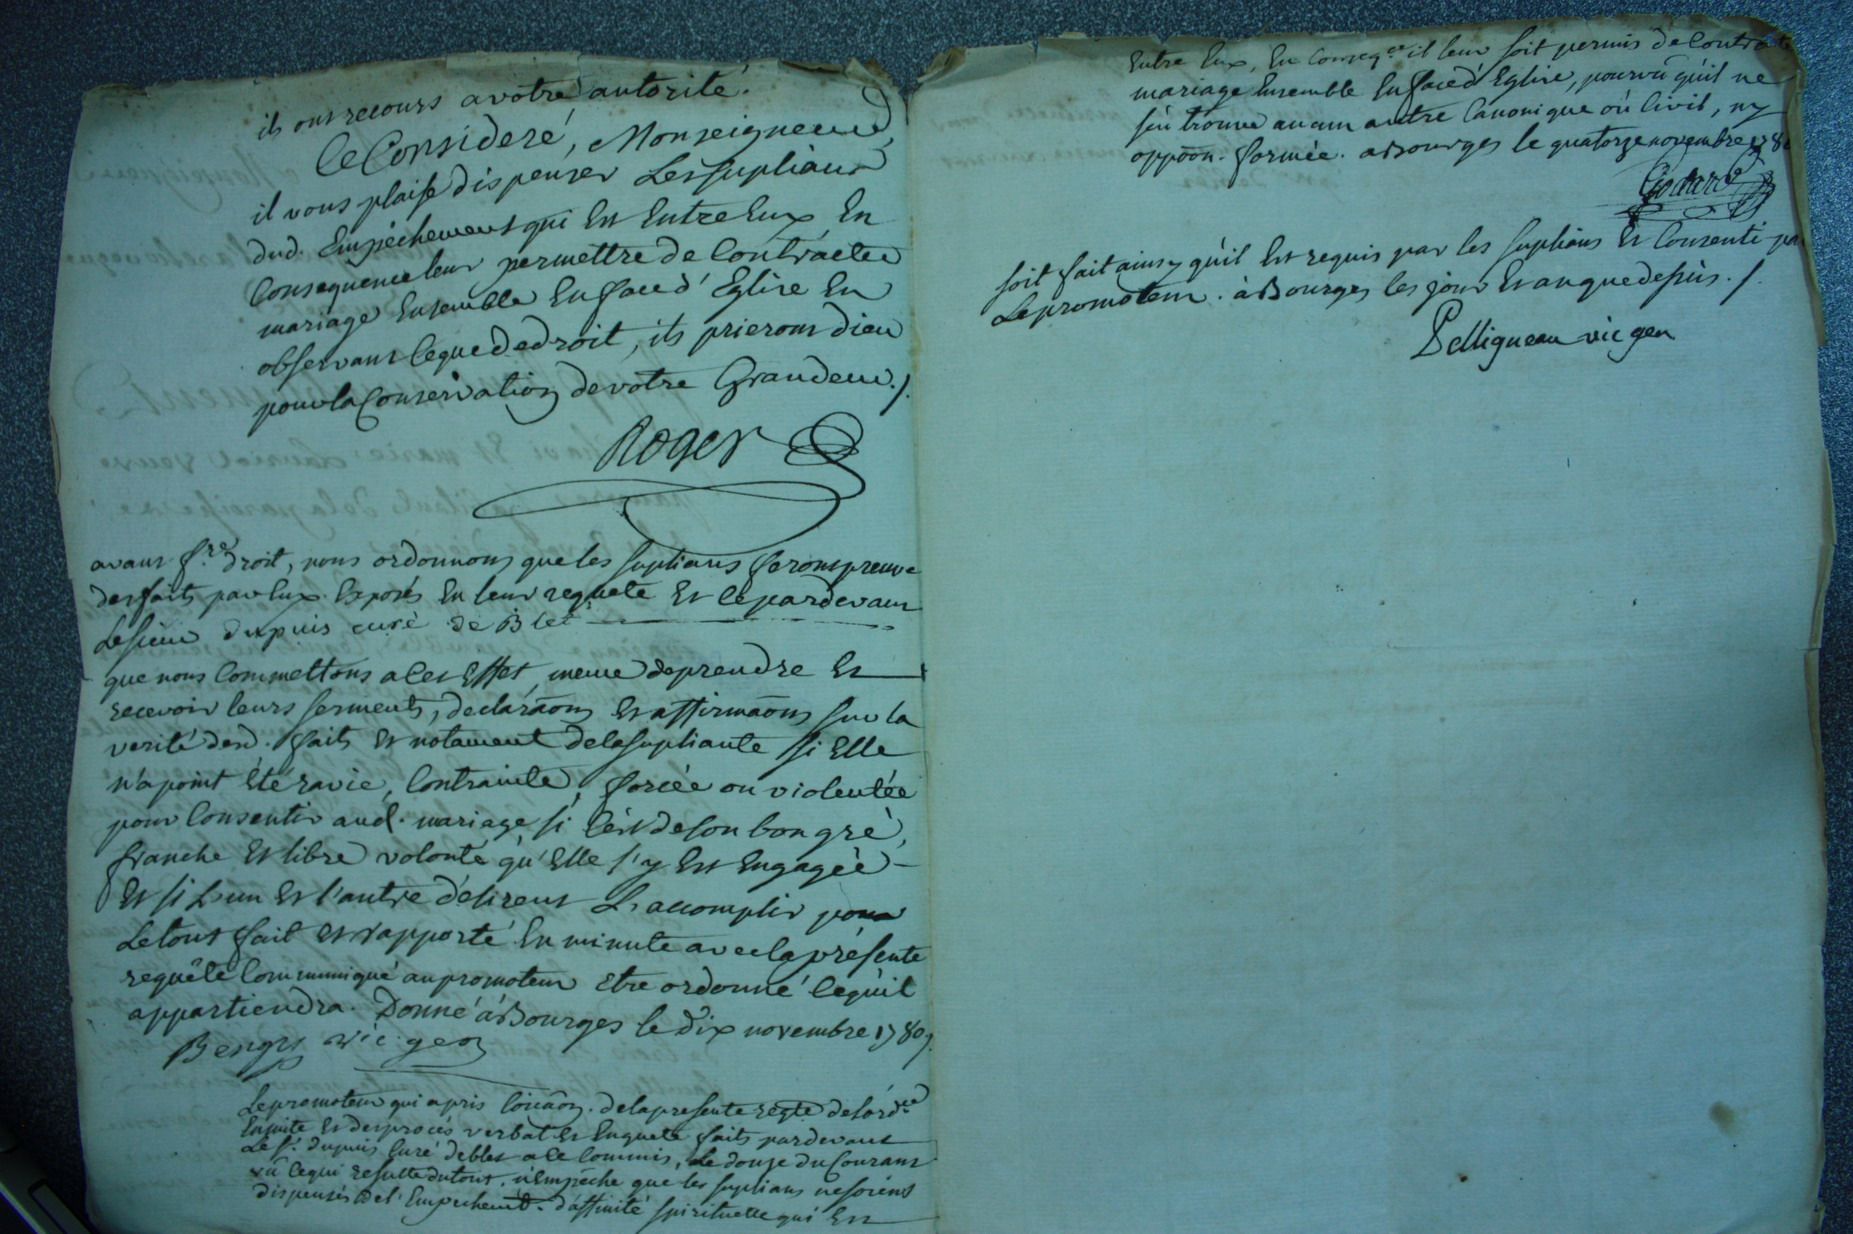 ils ont recours a votre autorité.
Ce Consideré, Monseigneur,
il vous plaise dispenser Les supliants
dud. Empéchement qui Est Entre Eux En
Consequence leur permettre de Contracter
mariage Ensemble En face d'Eglise En
observant ce que de droit, ils prieront dieu
pour la Conservation de votre Grandeur ./.
Roger
avant f.re droit, nous ordonnons que les suplians feront preuve
des faits par Eux Exposés En leur requete Et ce pardevant
Le sieur dupuis curé de Blet
que nous Commettons a cet Effet, meme de prendre Et
recevoir leurs serments, declarãons Et affirmãons sur la
verité desd. faits Et notament de la supliante si Elle
n'a point Eté ravie, Contrainte, forcée ou violentée
pour Consentir aud. mariage si C'est de son bon gré,
franche Et libre volonté qu'Elle s'y Est Engagée
Et si L'un Et l'autre désirent L'accomplir pour
Le tout fait Et rapporté En minute avec la présente
requête Communiqué au promoteur Etre ordonné ce qu'il
appartiendra. Donné à Bourges le dix novembre 1780 ./.
Bengy vic. gen
Le promoteur qui a pris Coɱãon. de la presente reqte de l'ord.ce
Ensuite Et des procés verbal Et Enquete faits pardevant
Le Sr. dupuis Curé de blet a ce Commis, Le douze du Courant
vû ce qui resulte du tout, n'Empéche que les suplians ne soient
dispensés de l'Empechemt. d'affinité spirituelle qui Est
Entre Eux, En Conseq.ce il leur soit permis de Contracter
mariage Ensemble En face d'Eglise, pourvû qu'il ne
s'en trouve aucun autre Canonique où Civil, ny
oppõon. formée. a Bourges le quatorze novembre 1780
Godard
soit fait ainsy qu'il Est requis par les suplians Et Consenti par
Le promoteur. à Bourges les jour Et an que dessus ./.
Pelligneau vic gen